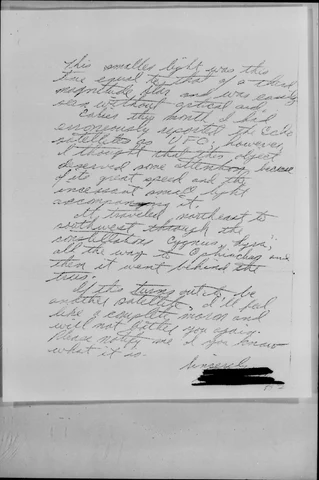 This smaller light was this
time equal to that of a third
magnitude star and was easily
seen without optical aid.
Earlier this month I had
erroneously reported the Echo
satellite as UFO; however,
I thought that this object
deserved some attention because
of its great speed and the
incessant small light
accompanying it.
It traveled northeast to
southwest through the
constellations Cygnus, Lyra,
all the way to Ophiuchus and
then it went behind the
trees.
If this turns out to be
another satellite, I'll feel
like a complete moron and
will not bother you again.
Please notify me if you know
what it is.
Sincerely